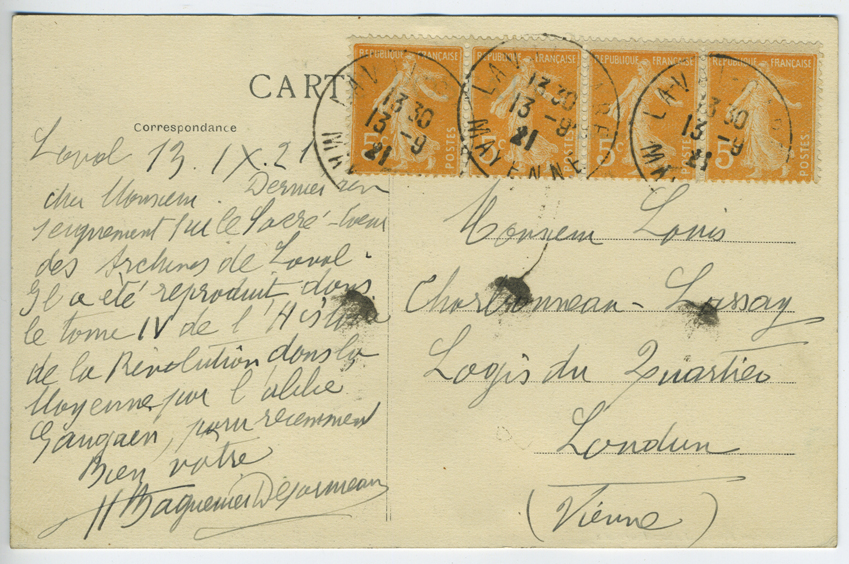 CARTE
Correspondance
REPUBLIQUE FRANÇAISE
5c
POSTES
REPUBLIQUE FRANÇAISE
5c
POSTES
REPUBLIQUE FRANÇAISE
5c
POSTES
REPUBLIQUE FRANÇAISE
5c
POSTES
LAVAL
13 30
13 -9
21
MAYENNE
LAVAL
13 30
13 -9
21
MAYENNE
LAVAL
13 30
13 -9
21
Laval 13. IX. 21
cher Monsieur. Dernier ren
seignement sur le Sacré-Coeur
des Archives de Laval.
Il a été reproduit dans
le tome IV de l'Histoire
de la Révolution dans la
Mayenne par l'abbé
Gaugain, paru récemment
Bien votre
Monsieur Louis
Charbonneau-Lassay
Logis du Quartier
Loudun
(Vienne)